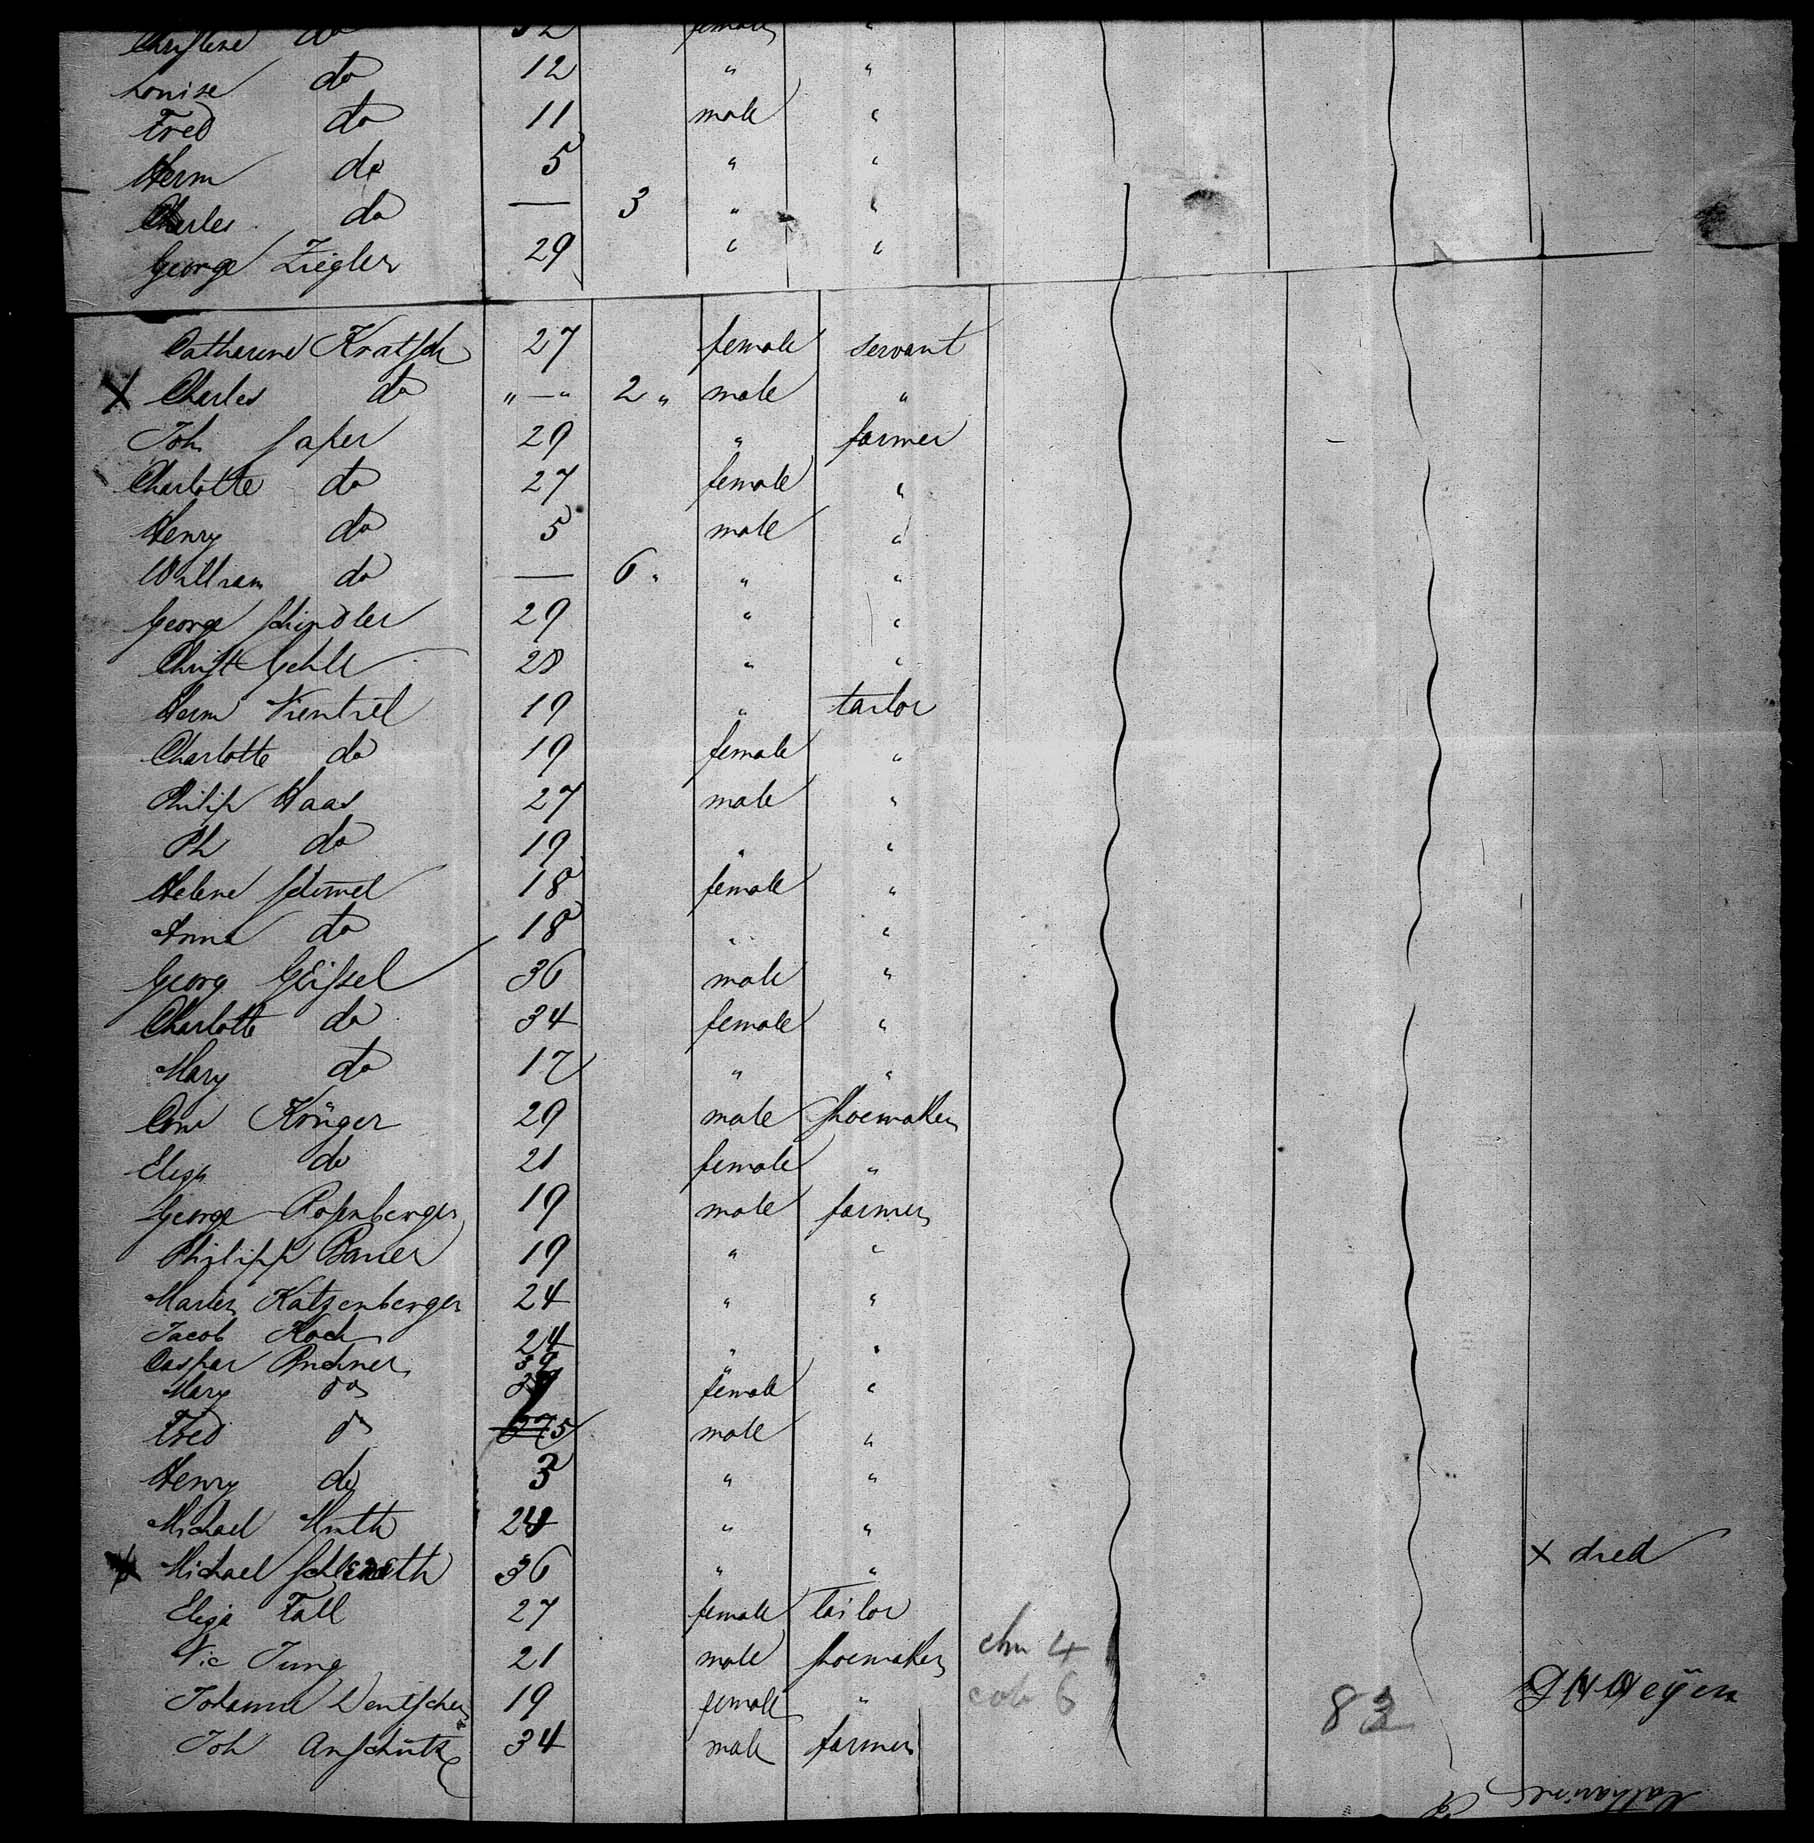 Christine do 32 female "
Louise do 12 " "
Fred do 11 male "
Herm do 5 " "
Charles do — 3 " "
George Ziegler 29 " "
Catharine Kratsch 27 female servant
X Charles do " — " 2 " male "
Joh Saper 29 " farmer
Charlotte do 27 female "
Henry do 5 male "
William do — 6 " " "
George Schindler 29 " "
Christ Gehle 28 " "
Herm Vientril 19 " tailor
Charlotte do 19 female "
Philip Haas 27 male "
Ph do 19 " "
Helene Schimmel 18 female "
Anna do 18 " "
Georg Geissel 36 male "
Charlotte do 34 female "
Mary do 17 " "
Con Krüger 29 male shoemaker
Eliza do 21 female "
George Rosenberger 19 male farmer
Philipp Bauer 19 " "
Martin Katzenberger 24 " "
Jacob Koch 24 " "
Caspar Buchner 39 " "
Mary do female "
Fred do 5 male "
Henry do 3 " "
Michael Muth 24 " "
X Michael 36 " " X died
Eliza Fall 27 female tailor
Nic Jung 21 male shoemaker chn 4
Johanna Deutscher 19 female " 6 83 Meyer
Joh Anschütz 34 male farmer
Catharine